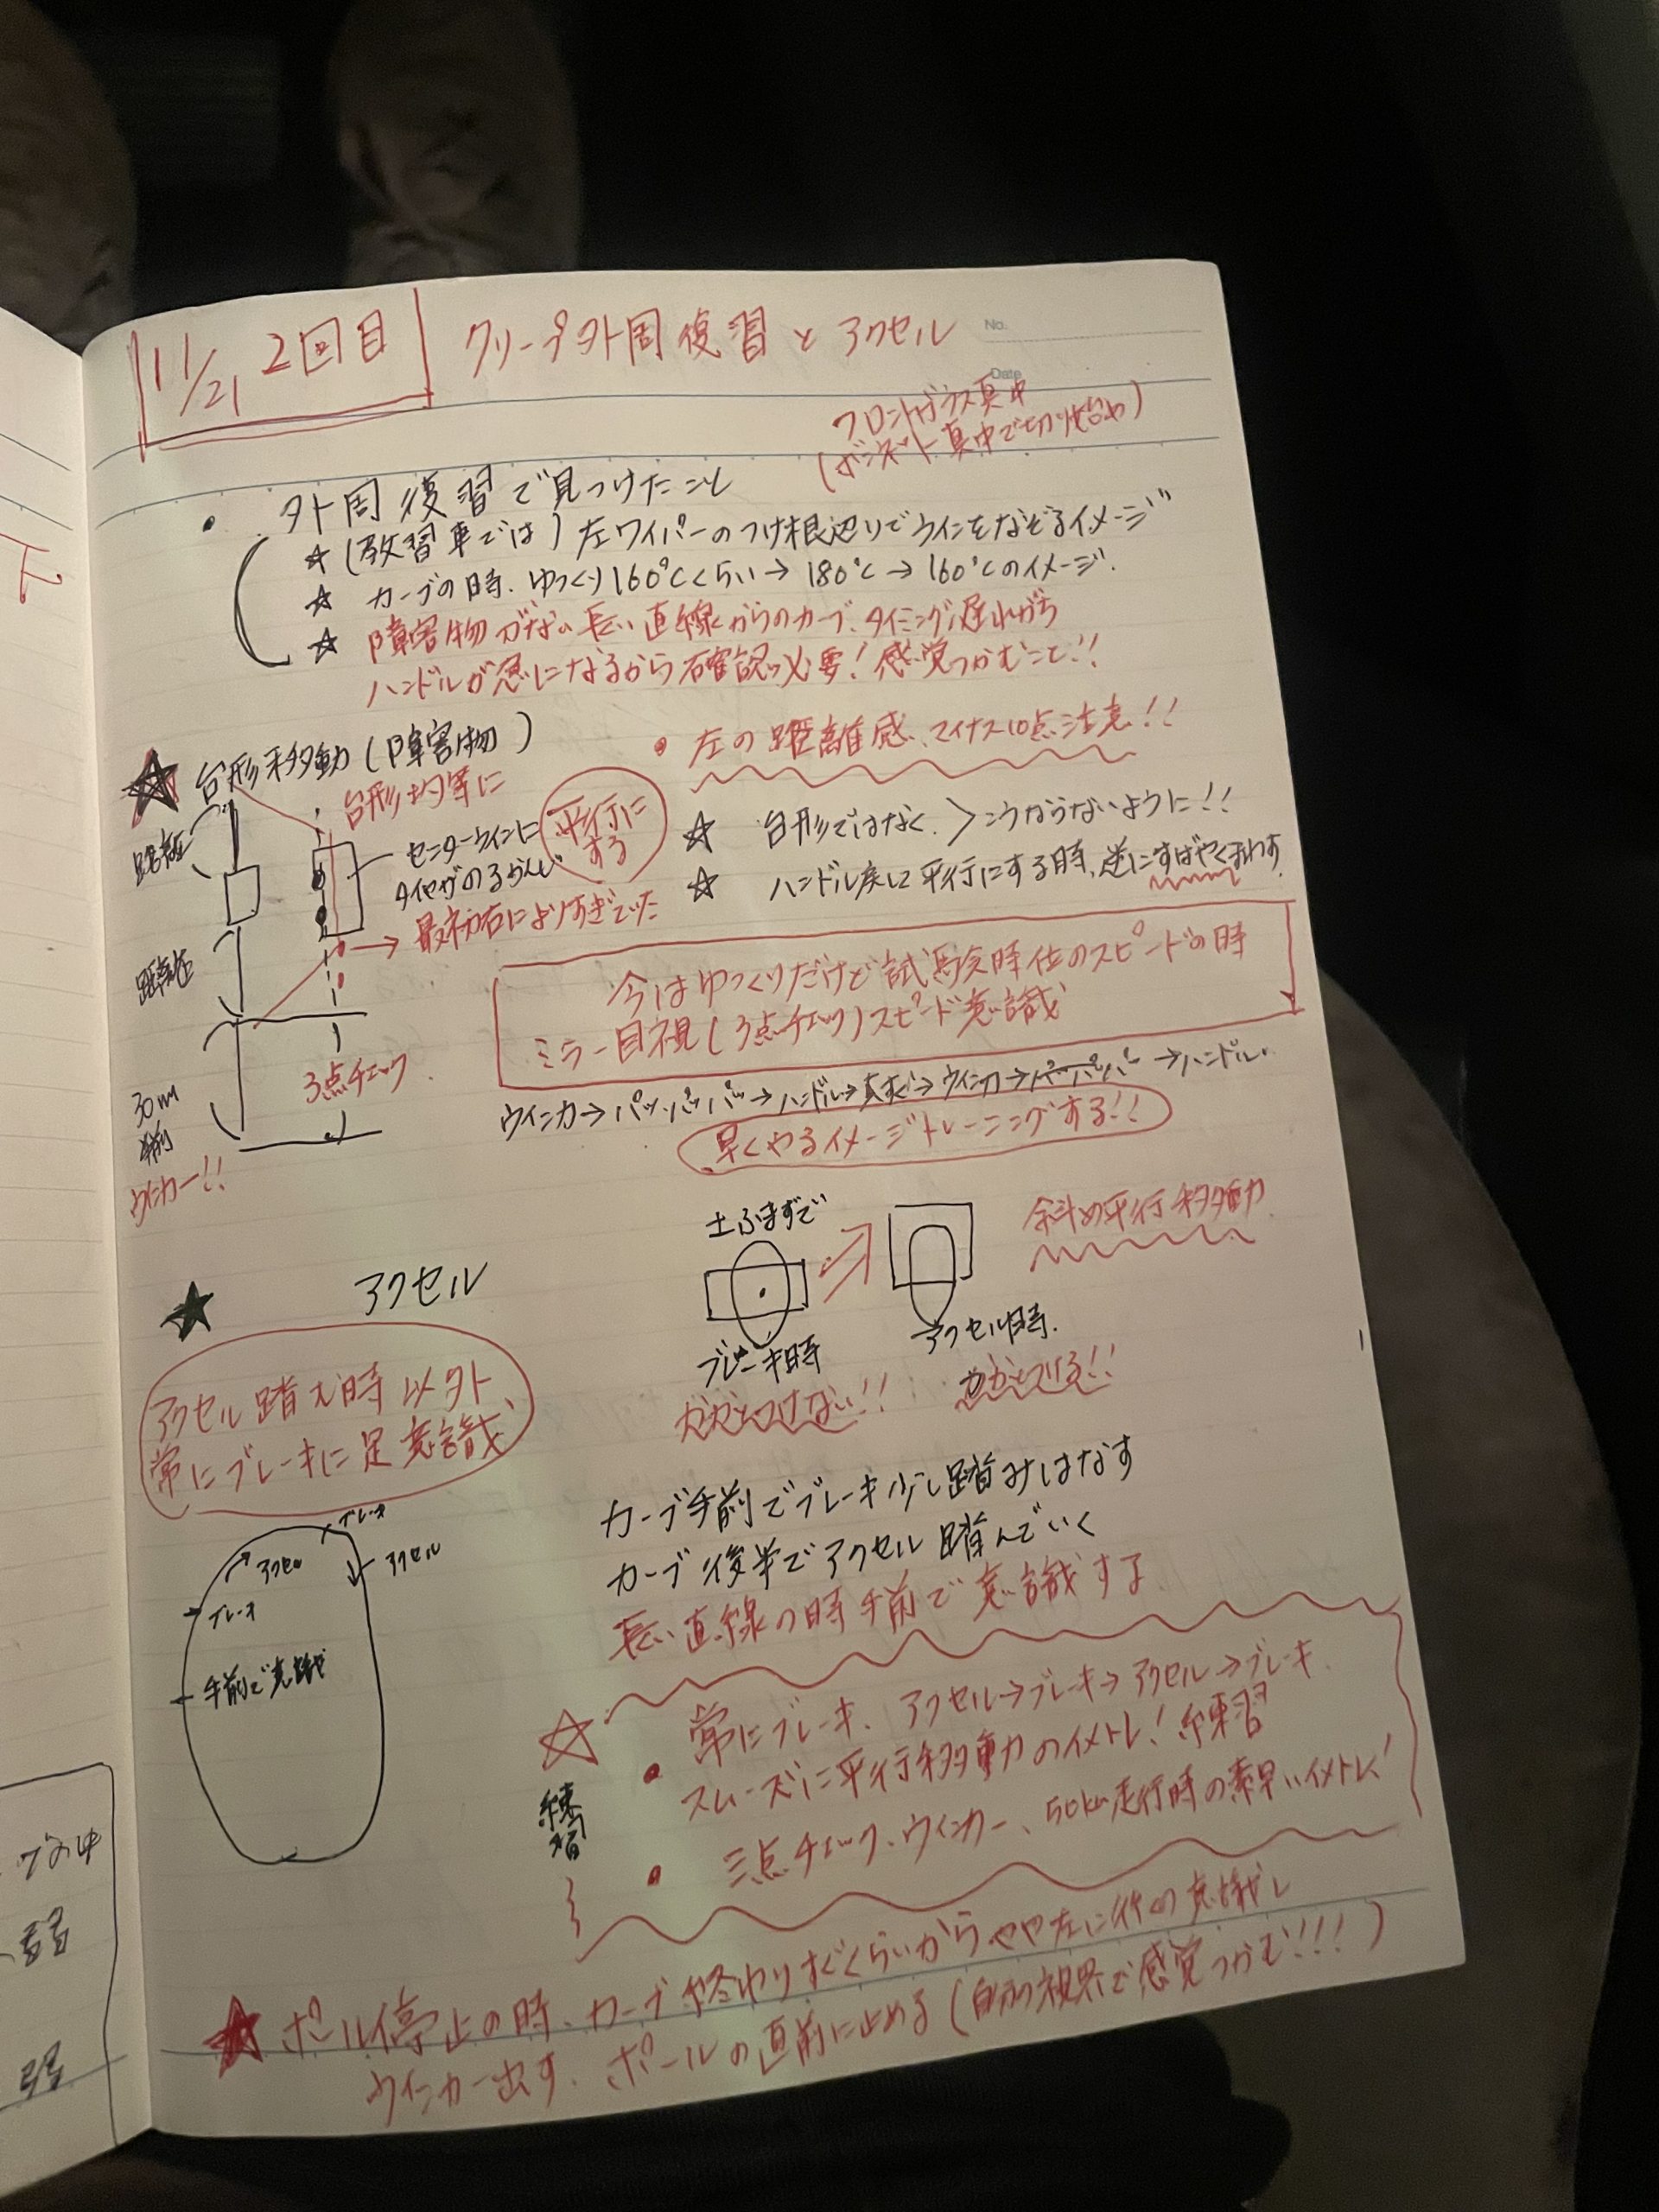 11/21 2回目
クリープ外周復習とアクセル
No.
Date
フロントガラス真中
(ボンネット真中で切り始め)
・外周復習で見つけたこと
☆(教習車では)左ワイパーのつけ根辺りでラインをなぞるイメージ
☆ カーブの時、ゆっくり160°Cくらい→180°C→160°Cのイメージ.
☆ 障害物がない長い直線からのカーブ、タイミング遅れがち
ハンドルが急になるから確認必要!感覚つかむこと!!
★台形移動(障害物)
台形均等に
・左の距離感、マイナス10点注意!!
距離
センターラインに
タイヤがのるかんじ
平行に
する
→最初右によりすぎていた
☆ 台形ではなく、>こうならないように!!
☆ ハンドル戻して平行にする時、逆にすばやくまわす.
距離
3点チェック.
30m
手前
ウィンカー!!
今はゆっくりだけど試験時位のスピードの時
ミラー目視(3点チェック)スピード意識
ウィンカ→パッパッパ→ハンドル→真すぐ→ウィンカ→パッパッパ→ハンドル.
早くやるイメージトレーニングする!!
★ アクセル
アクセル踏む時以外
常にブレーキに足意識
土ふまずで
ブレーキ時
かかとつけない!!
アクセル時.
かかとつける!!
斜め平行移動
ブレーキ
アクセル
アクセル
ブレーキ
手前で意識
カーブ手前でブレーキ少し踏みはなす
カーブ後半でアクセル踏んでいく
長い直線の時手前で意識する
☆
練習
・常にブレーキ、アクセル→ブレーキ→アクセル→ブレーキ.
スムーズに平行移動のイメトレ!練習
・三点チェック、ウィンカー、50km走行時の素早いイメトレ!
★ポール停止の時、カーブ終わりすぐくらいからやや左に行く意識し
ウィンカー出す.ポールの直前に止める(自分の視界で感覚つかむ!!!)